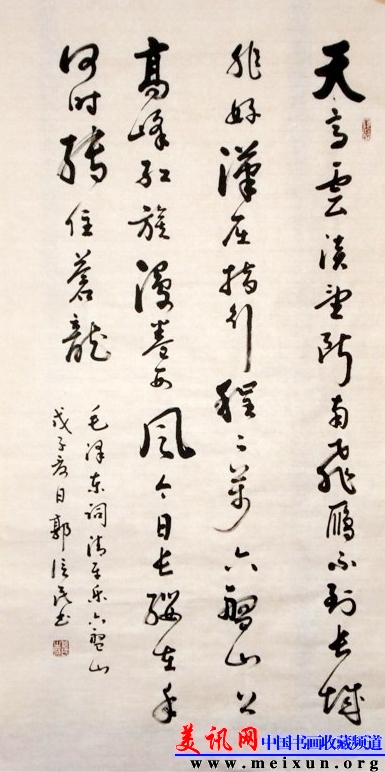 天高雲淡望断南飛雁不到长城
非好漢屈指行程二萬六盤山上
高峰红旗漫卷西風今日长缨在手
何时缚住蒼龍
毛泽东词清平乐六盤山
戊子夏日郭民书
美讯网 中国书画收藏频道
www.meixun.org